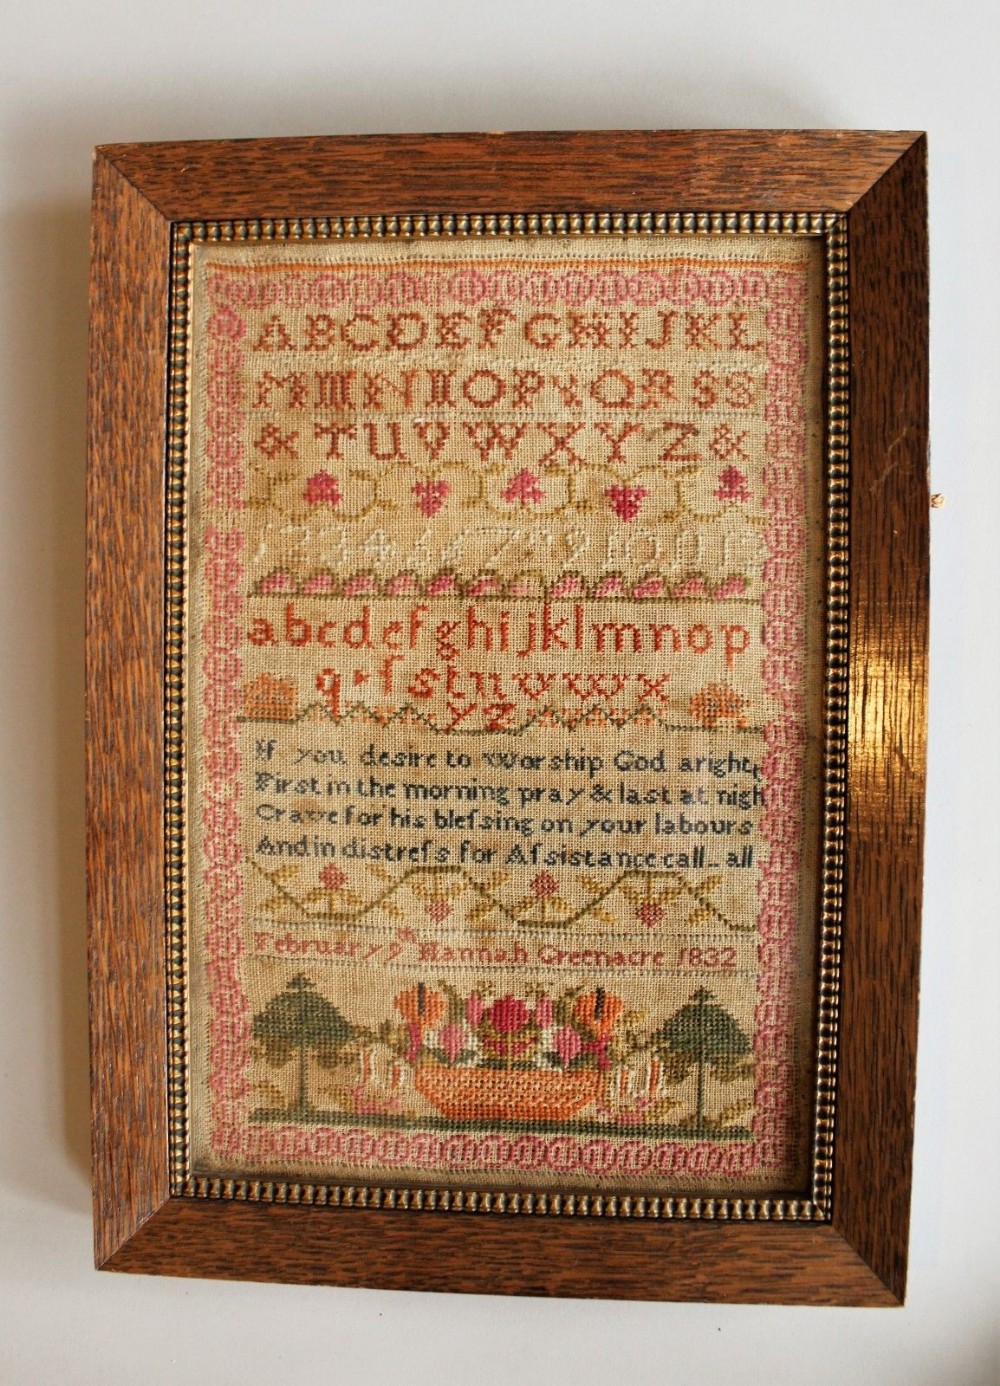 A B C D E F G H I J K L
M M N I I O P Q R S S
& T U V W X Y Z &
1 2 3 4 5 6 7 8 9 10 11 12
a b c d e f g h i j k l m n o p
q r ſ s t u v w x
y z
If you desire to Worship God aright
First in the morning pray & last at nigh
Crave for his bleſsing on your labours
And in distreſs for Aſsistance call_all
February 9th Hannah Greenacre 1832